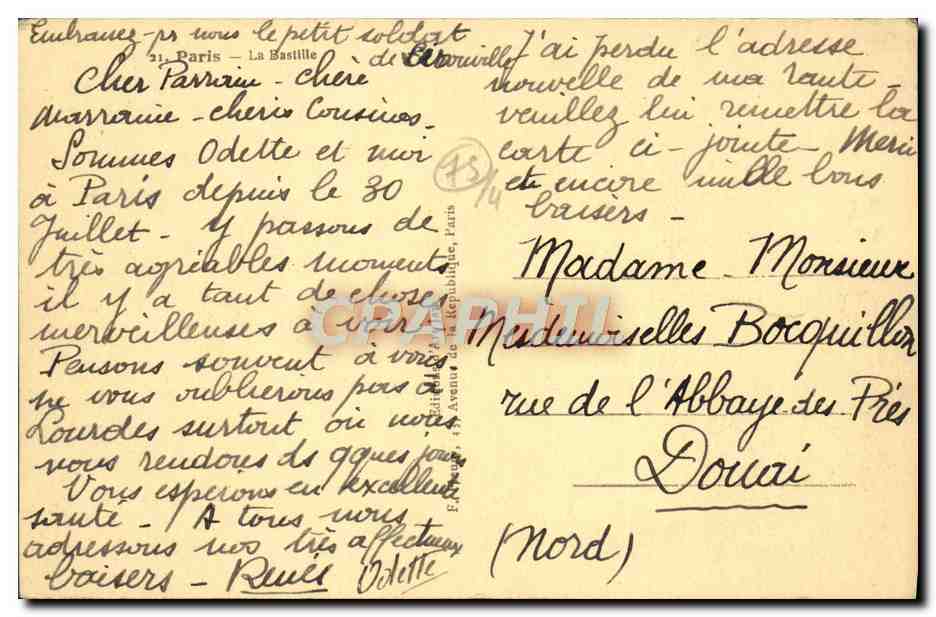 Embrassez-pr nous le petit soldat
de
21. Paris – La Bastille
Cher Parrain - chère
Marraine - chéris Cousines.
Sommes Odette et moi
à Paris depuis le 30
Juillet - y passons de
très agréables moments
il y a tant de choses
merveilleuses à voir -
Pensons souvent à vous
ne vous oublierons pas à
Lourdes surtout où nous
nous rendons ds qques jours
Vous espérons en excellente
santé - A tous nous
adressons nos très affectueux
baisers - Renée Odette
75/4
Avenue de la République, Paris
J'ai perdu l'adresse
nouvelle de ma tante -
veuillez lui remettre la
carte ci-jointe - Merci
et encore mille bons
baisers -
Madame - Monsieur
Mesdemoiselles Bocquillon
rue de l'Abbaye-des-Prés
Douai
(Nord)
CPAPHIL